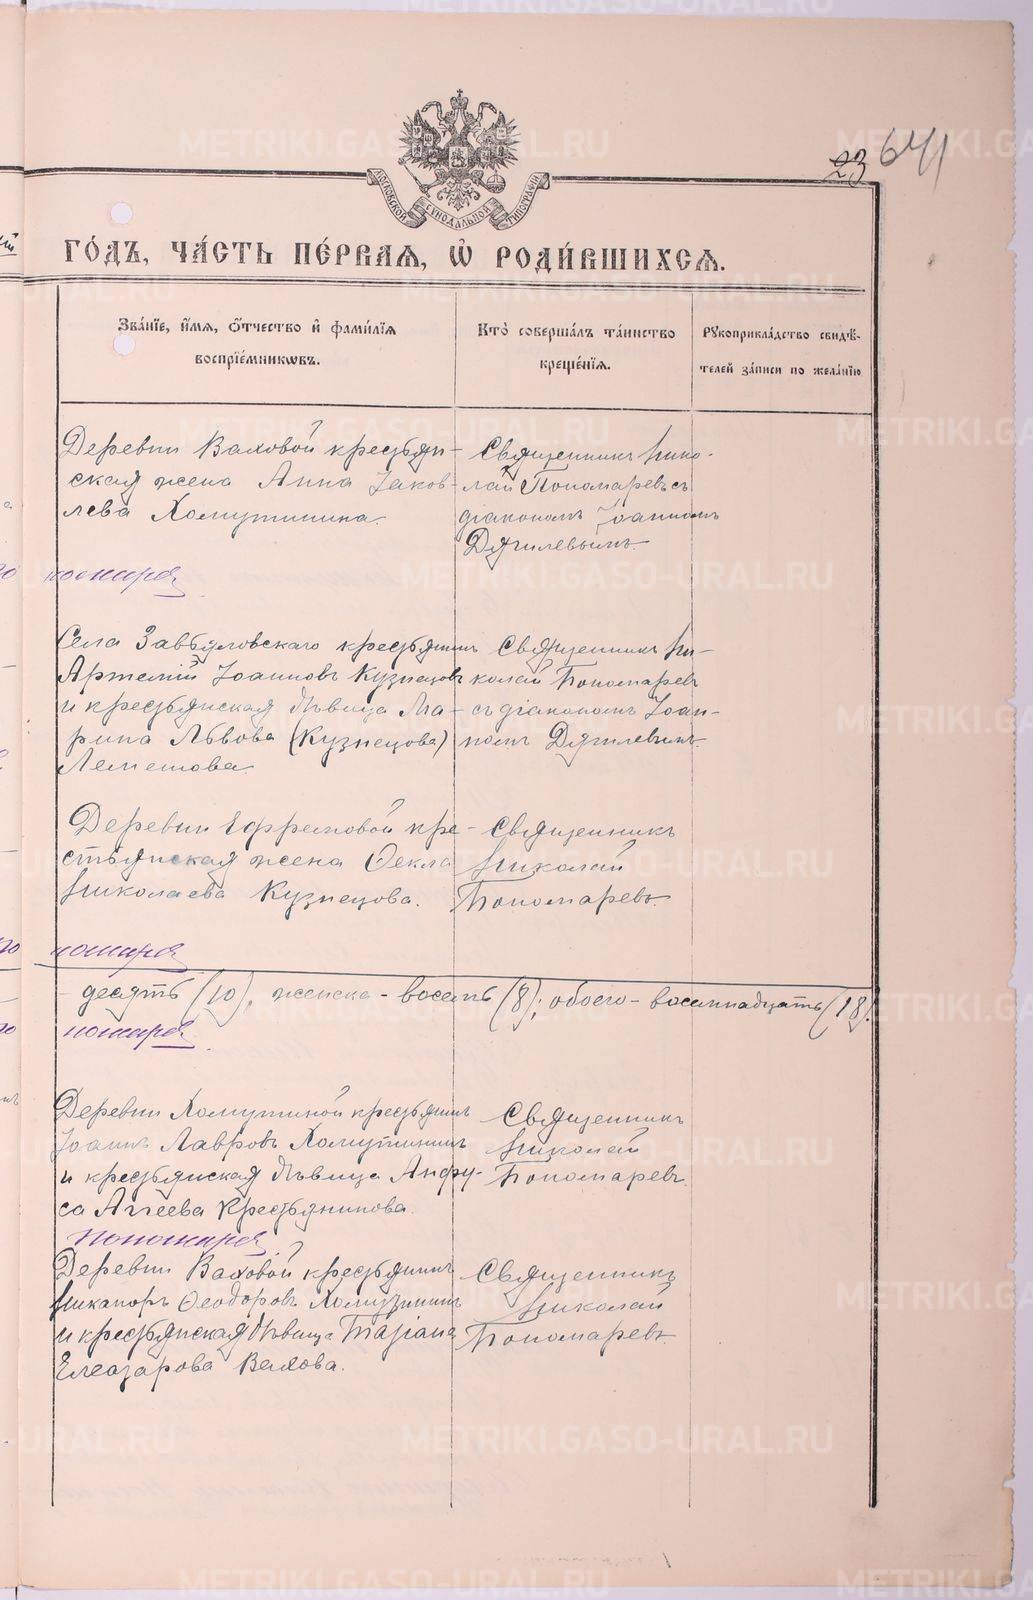 METRIKI.GASO-URAL.RU
23 641
МОСКОВСКОЙ СѴНОДАЛЬНОЙ ТИПОГРАФІИ
ГО́ДЪ, ЧА́СТЬ ПЕ́РВАЯ, Ѽ РОДИ́ВШИХСЯ.
Зва́нїе, и́мя, ѻ́тчество и҆ фами́лїя
воспрїе́мникѡвъ.
Кто̀ соверша́лъ та́инство
креще́нїя.
Рꙋкоприкла́дство свидѣ́-
телей за́писи по жела́нїю
Деревни Ваховой крестьян-
ская жена Анна Іаков-
лева Хомутинина.
Священникъ Нико-
лай Пономаревъ съ
діакономъ Іоанномъ
Дягилевымъ.
Села Завьяловскаго крестьянинъ
Артемій Іоанновъ Кузнецовъ
и крестьянская дѣвица Ма-
рина Львова (Кузнецова)
Лемешова.
Священникъ Ни-
колай Пономаревъ
съ діакономъ Іоан-
номъ Дягилевымъ.
Деревни Ефремовой кре-
стьянская жена Ѳекла
Николаева Кузнецова.
Священникъ
Николай
Пономаревъ.
десять (10), женска - восемь (8); обоего - восемнадцать (18).
Деревни Хомутиной крестьянинъ
Іоаннъ Лавровъ Хомутининъ
и крестьянская дѣвица Анфу-
са Аггеева Крестьянникова.
Священникъ
Николай
Пономаревъ.
Деревни Ваховой крестьянинъ
Никаноръ Ѳеодоровъ Хомутининъ
и крестьянская дѣвица Татіана
Елеазарова Вахова.
Священникъ
Николай
Пономаревъ.